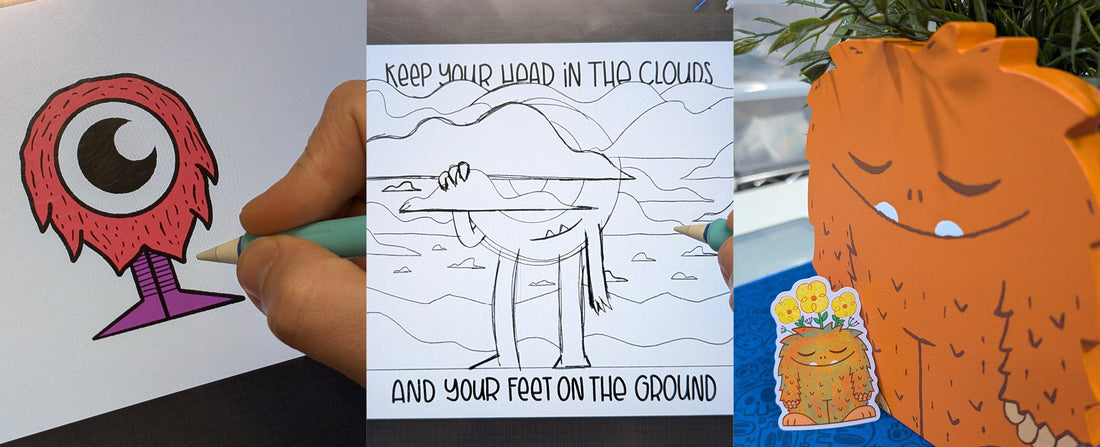 KEEP YOUR HEAD IN THE CLOUDS
AND YOUR FEET ON THE GROUND